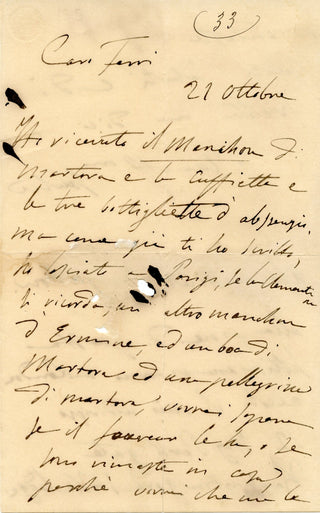 33
Caro Ferri
21 Ottobre
Ho ricevuto il Manchon di
martora e le cuffiette e
le tre bottigliette d'
ma come già ti ho scritto,
ho lasciato a Parigi, se la Clementine
si ricorda, un altro manchon
d'Ermine, ed un boa di
Martora ed una pellegrina
di martora, vorrei sapere
se il le ha, o se
sono rimaste in casa,
perchè vorrei che me le